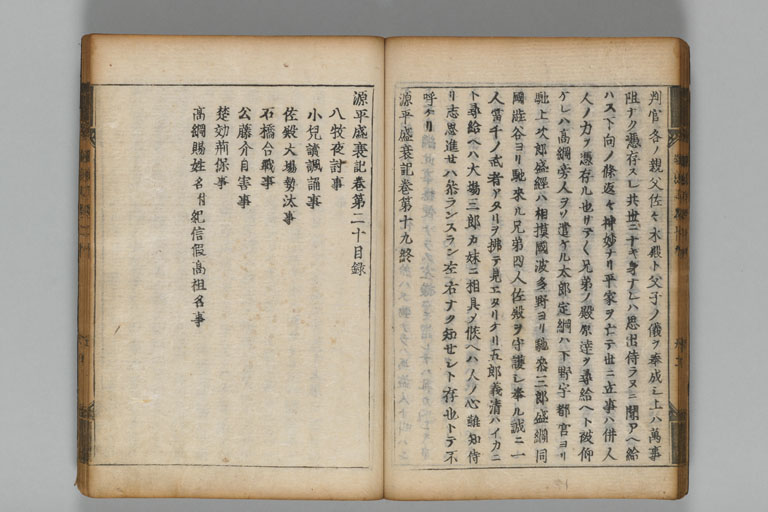 判官各ノ親父佐々木殿ト父子ノ儀ヲ奉成シ上ハ萬事
阻ナク憑存スレ共世ニナキ身ナレハ思出侍ラヌニ聞アヘ給
ハス下向ノ條返々神妙ナリ平家ヲ亡テ世ニ立事ハ併人
人ノ力ヲ憑存ル也サテ兄弟ノ殿原達ヲ尋給ヘト被仰
ケレハ高綱旁人ヲソ遣ケル太郎定綱ハ下野宇都宮ヨリ
馳上次郎盛經ハ相摸國波多野ヨリ馳參三郎盛綱同
國澁谷ヨリ馳來ル兄弟四人佐殿ヲ守護シ奉ル誠ニ一
人當千ノ武者アタリヲ拂テ見エタリケリ五郎義清ハイカニ
ト尋給ヘハ大場三郎カ妹ニ相具シ候ヘハ人ノ心難知侍
リ志思進セハ參ランスラン左右ナク知せシト存也トテ不
呼ケリ
源平盛衰記卷第十九終
源平盛衰記卷第二十目録
八牧夜討事
小兒讀諷誦事
佐殿大場勢汰事
石橋合戰事
公藤介自害事
楚効荊保事
高綱賜姓名附紀信假高祖名事